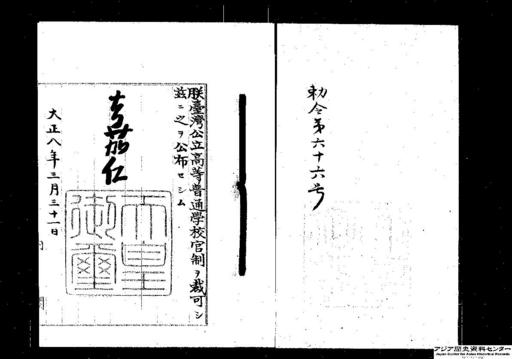 勅令第六十六号
朕臺灣公立高等普通學校官制ヲ裁可シ
茲ニ之ヲ公布セシム
嘉仁
天皇御璽
大正八年三月三十一日
アジア歴史資料センター
Japan Center for Asian Historical Records